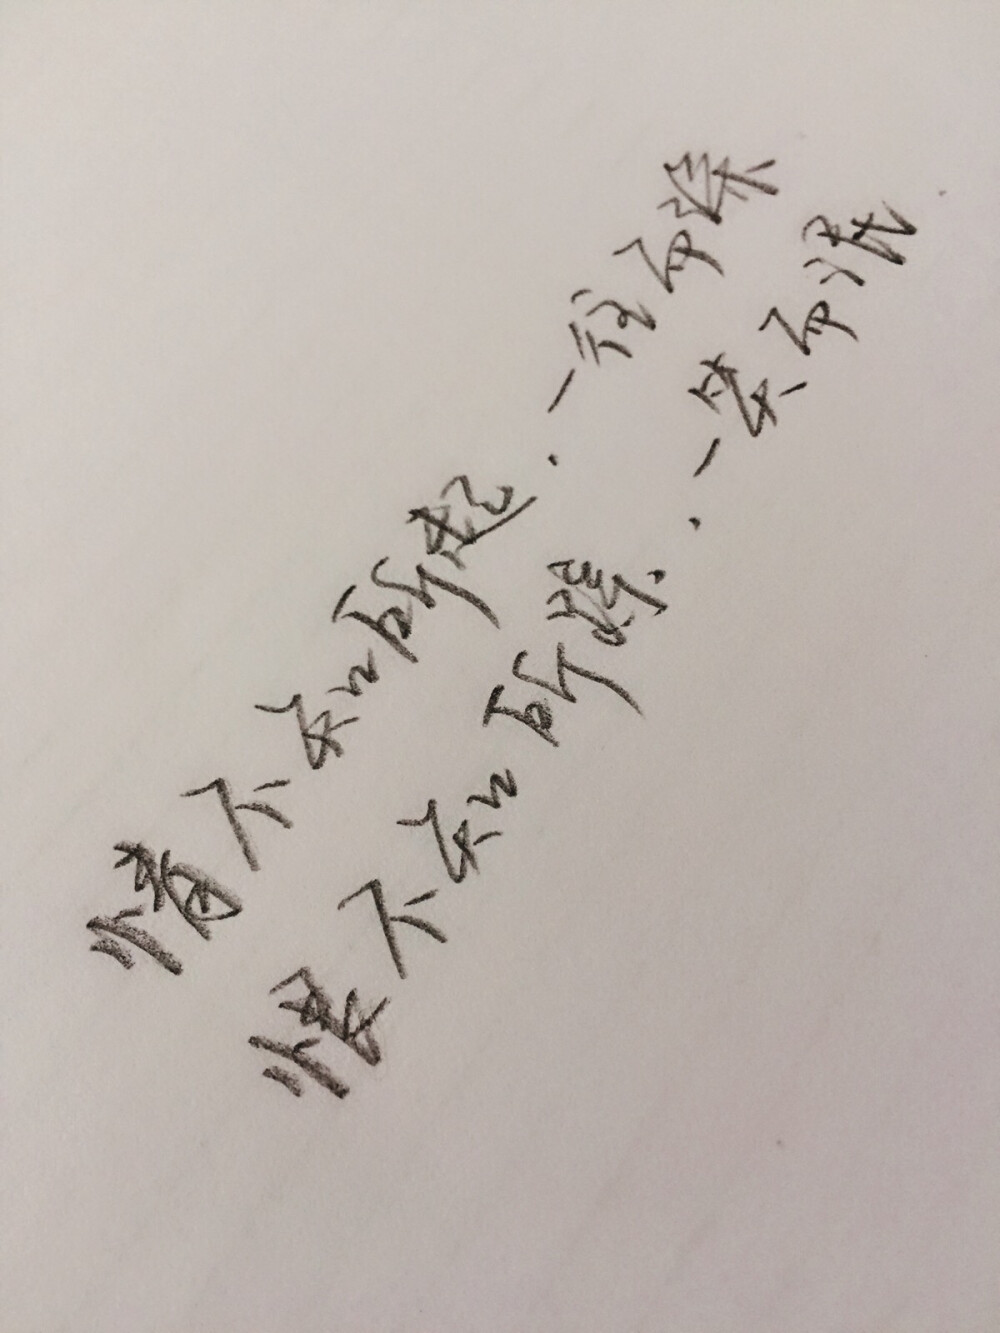 情不知所起.一往而深
恨不知所踪.一笑而泯.